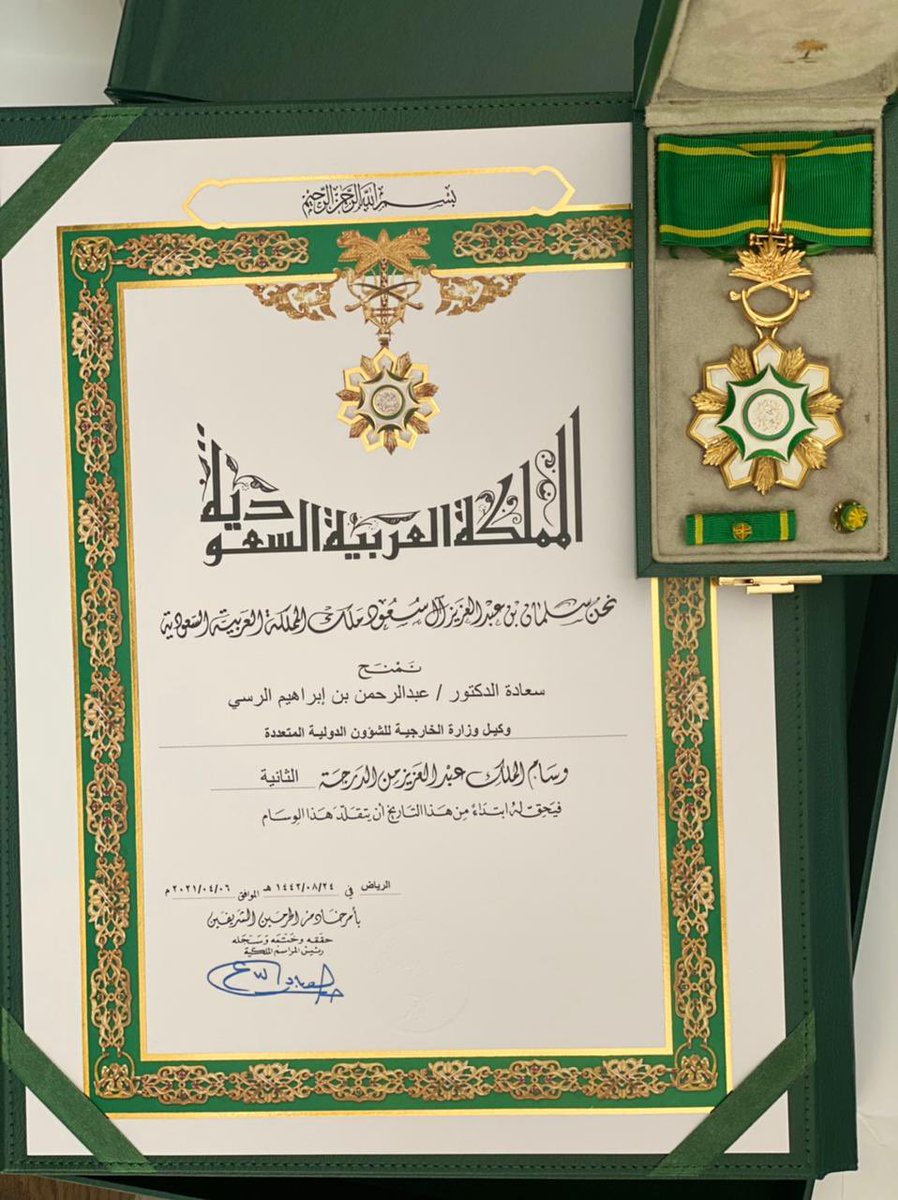 بسم الله الرحمن الرحيم
المملكة العربية السعودية
نحن سلمان بن عبدالعزيز آل سعود ملك المملكة العربية السعودية
نمنح
سعادة الدكتور / عبدالرحمن بن إبراهيم الرسي
وكيل وزارة الخارجية للشؤون الدولية المتعددة
وسام الملك عبدالعزيز من الدرجة الثانية
فيحق له ابتداءً من هذا التاريخ أن يتقلد هذا الوسام
الرياض في ١٤٤٢/٠٨/٢٤ هـ الموافق ٢٠٢١/٠٤/٠٦ م
بأمر خادم الحرمين الشريفين
حققه وختمه وسجله
رئيس المراسم الملكية